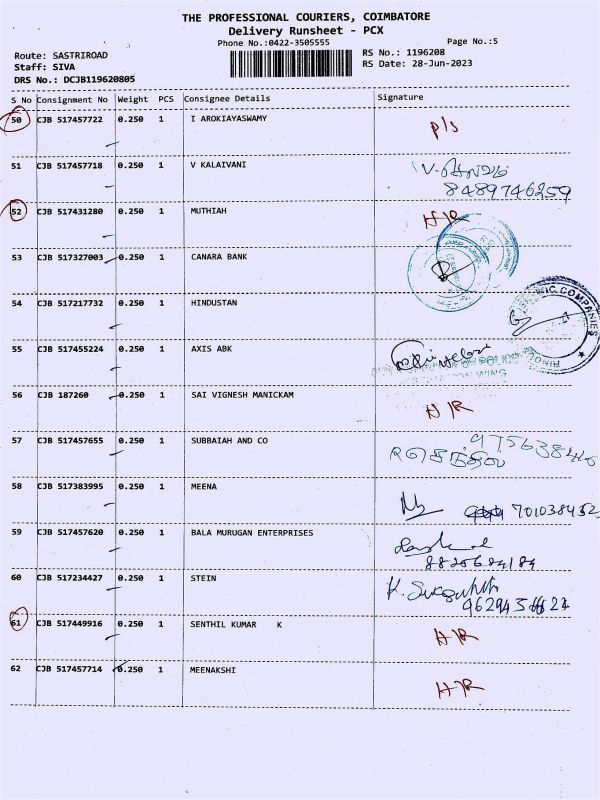 THE PROFESSIONAL COURIERS, COIMBATORE
Delivery Runsheet - PCX
Phone No.:0422-3505555 Page No.:5
Route: SASTRIROAD RS No.: 1196208
Staff: SIVA RS Date: 28-Jun-2023
DRS No.: DCJB119620805
S No Consignment No Weight PCS Consignee Details Signature
50 CJB 517457722 0.250 1 I AROKIAYASWAMY P/S
51 CJB 517457718 0.250 1 V KALAIVANI
8489746259
52 CJB 517431280 0.250 1 MUTHIAH H/R
53 CJB 517327003 0.250 1 CANARA BANK
54 CJB 517217732 0.250 1 HINDUSTAN
55 CJB 517455224 0.250 1 AXIS ABK
56 CJB 187260 0.250 1 SAI VIGNESH MANICKAM H/R
57 CJB 517457655 0.250 1 SUBBAIAH AND CO
58 CJB 517383995 0.250 1 MEENA
59 CJB 517457620 0.250 1 BALA MURUGAN ENTERPRISES
60 CJB 517234427 0.250 1 STEIN
61 CJB 517449916 0.250 1 SENTHIL KUMAR K H/R
62 CJB 517457714 0.250 1 MEENAKSHI H/R